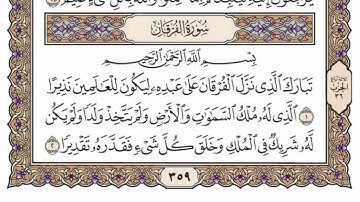 سُورَةُ الفُرْقَانِ
بِسْمِ ٱللَّهِ ٱلرَّحْمَٰنِ ٱلرَّحِيمِ
تَبَارَكَ ٱلَّذِى نَزَّلَ ٱلْفُرْقَانَ عَلَىٰ عَبْدِهِۦ لِيَكُونَ لِلْعَٰلَمِينَ نَذِيرًا
١ ٱلَّذِى لَهُۥ مُلْكُ ٱلسَّمَٰوَٰتِ وَٱلْأَرْضِ وَلَمْ يَتَّخِذْ وَلَدًا وَلَمْ يَكُن
لَّهُۥ شَرِيكٌ فِى ٱلْمُلْكِ وَخَلَقَ كُلَّ شَىْءٍ فَقَدَّرَهُۥ تَقْدِيرًا ٢
٣٥٩
الحزب
٣٦